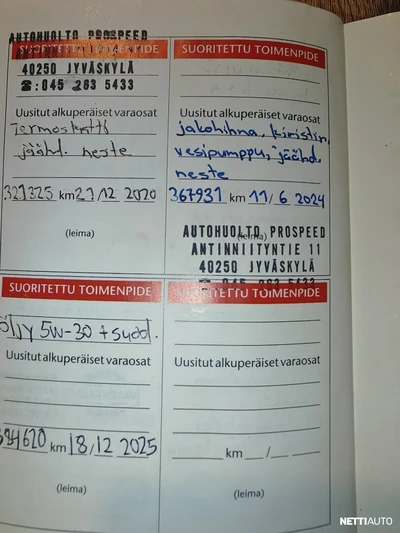 AUTOHUOLTO PROSPEED
SUORITETTU TOIMENPIDE
40250 JYVÄSKYLÄ
☎:045 263 5433
Uusitut alkuperäiset varaosat
Termostatti
jäähd. neste
321325 km 21/12 2020
(leima)
SUORITETTU TOIMENPIDE
Uusitut alkuperäiset varaosat
jakohihna, kiristin,
vesipumppu, jäähd.
neste
367931 km 11/6 2024
(leima)
AUTOHUOLTO PROSPEED
ANTINNIITYNTIE 11
40250 JYVÄSKYLÄ
☎ 045 263 5433
SUORITETTU TOIMENPIDE
Öljy 5W-30 + suod.
Uusitut alkuperäiset varaosat
394620 km 18/12 2025
(leima)
SUORITETTU TOIMENPIDE
Uusitut alkuperäiset varaosat
km / 
(leima)
NETTIAUTO